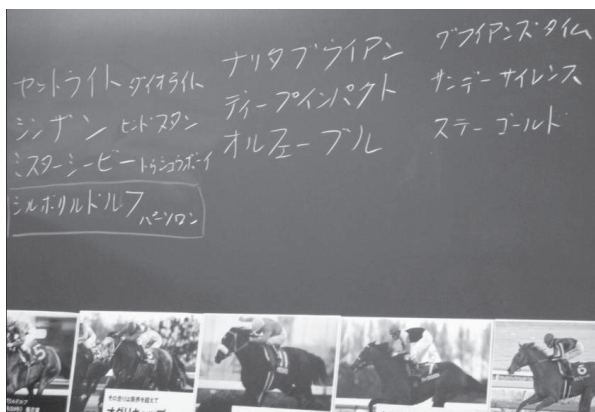 セントライト ダイオライト
シンザン ヒンドスタン
ミスターシービー トウショウボーイ
シンボリルドルフ パーソロン
ナリタブライアン
ディープインパクト
オルフェーブル
ブライアンズタイム
サンデーサイレンス
ステーゴールド
その走りは限界を超えて
オグリキャップ